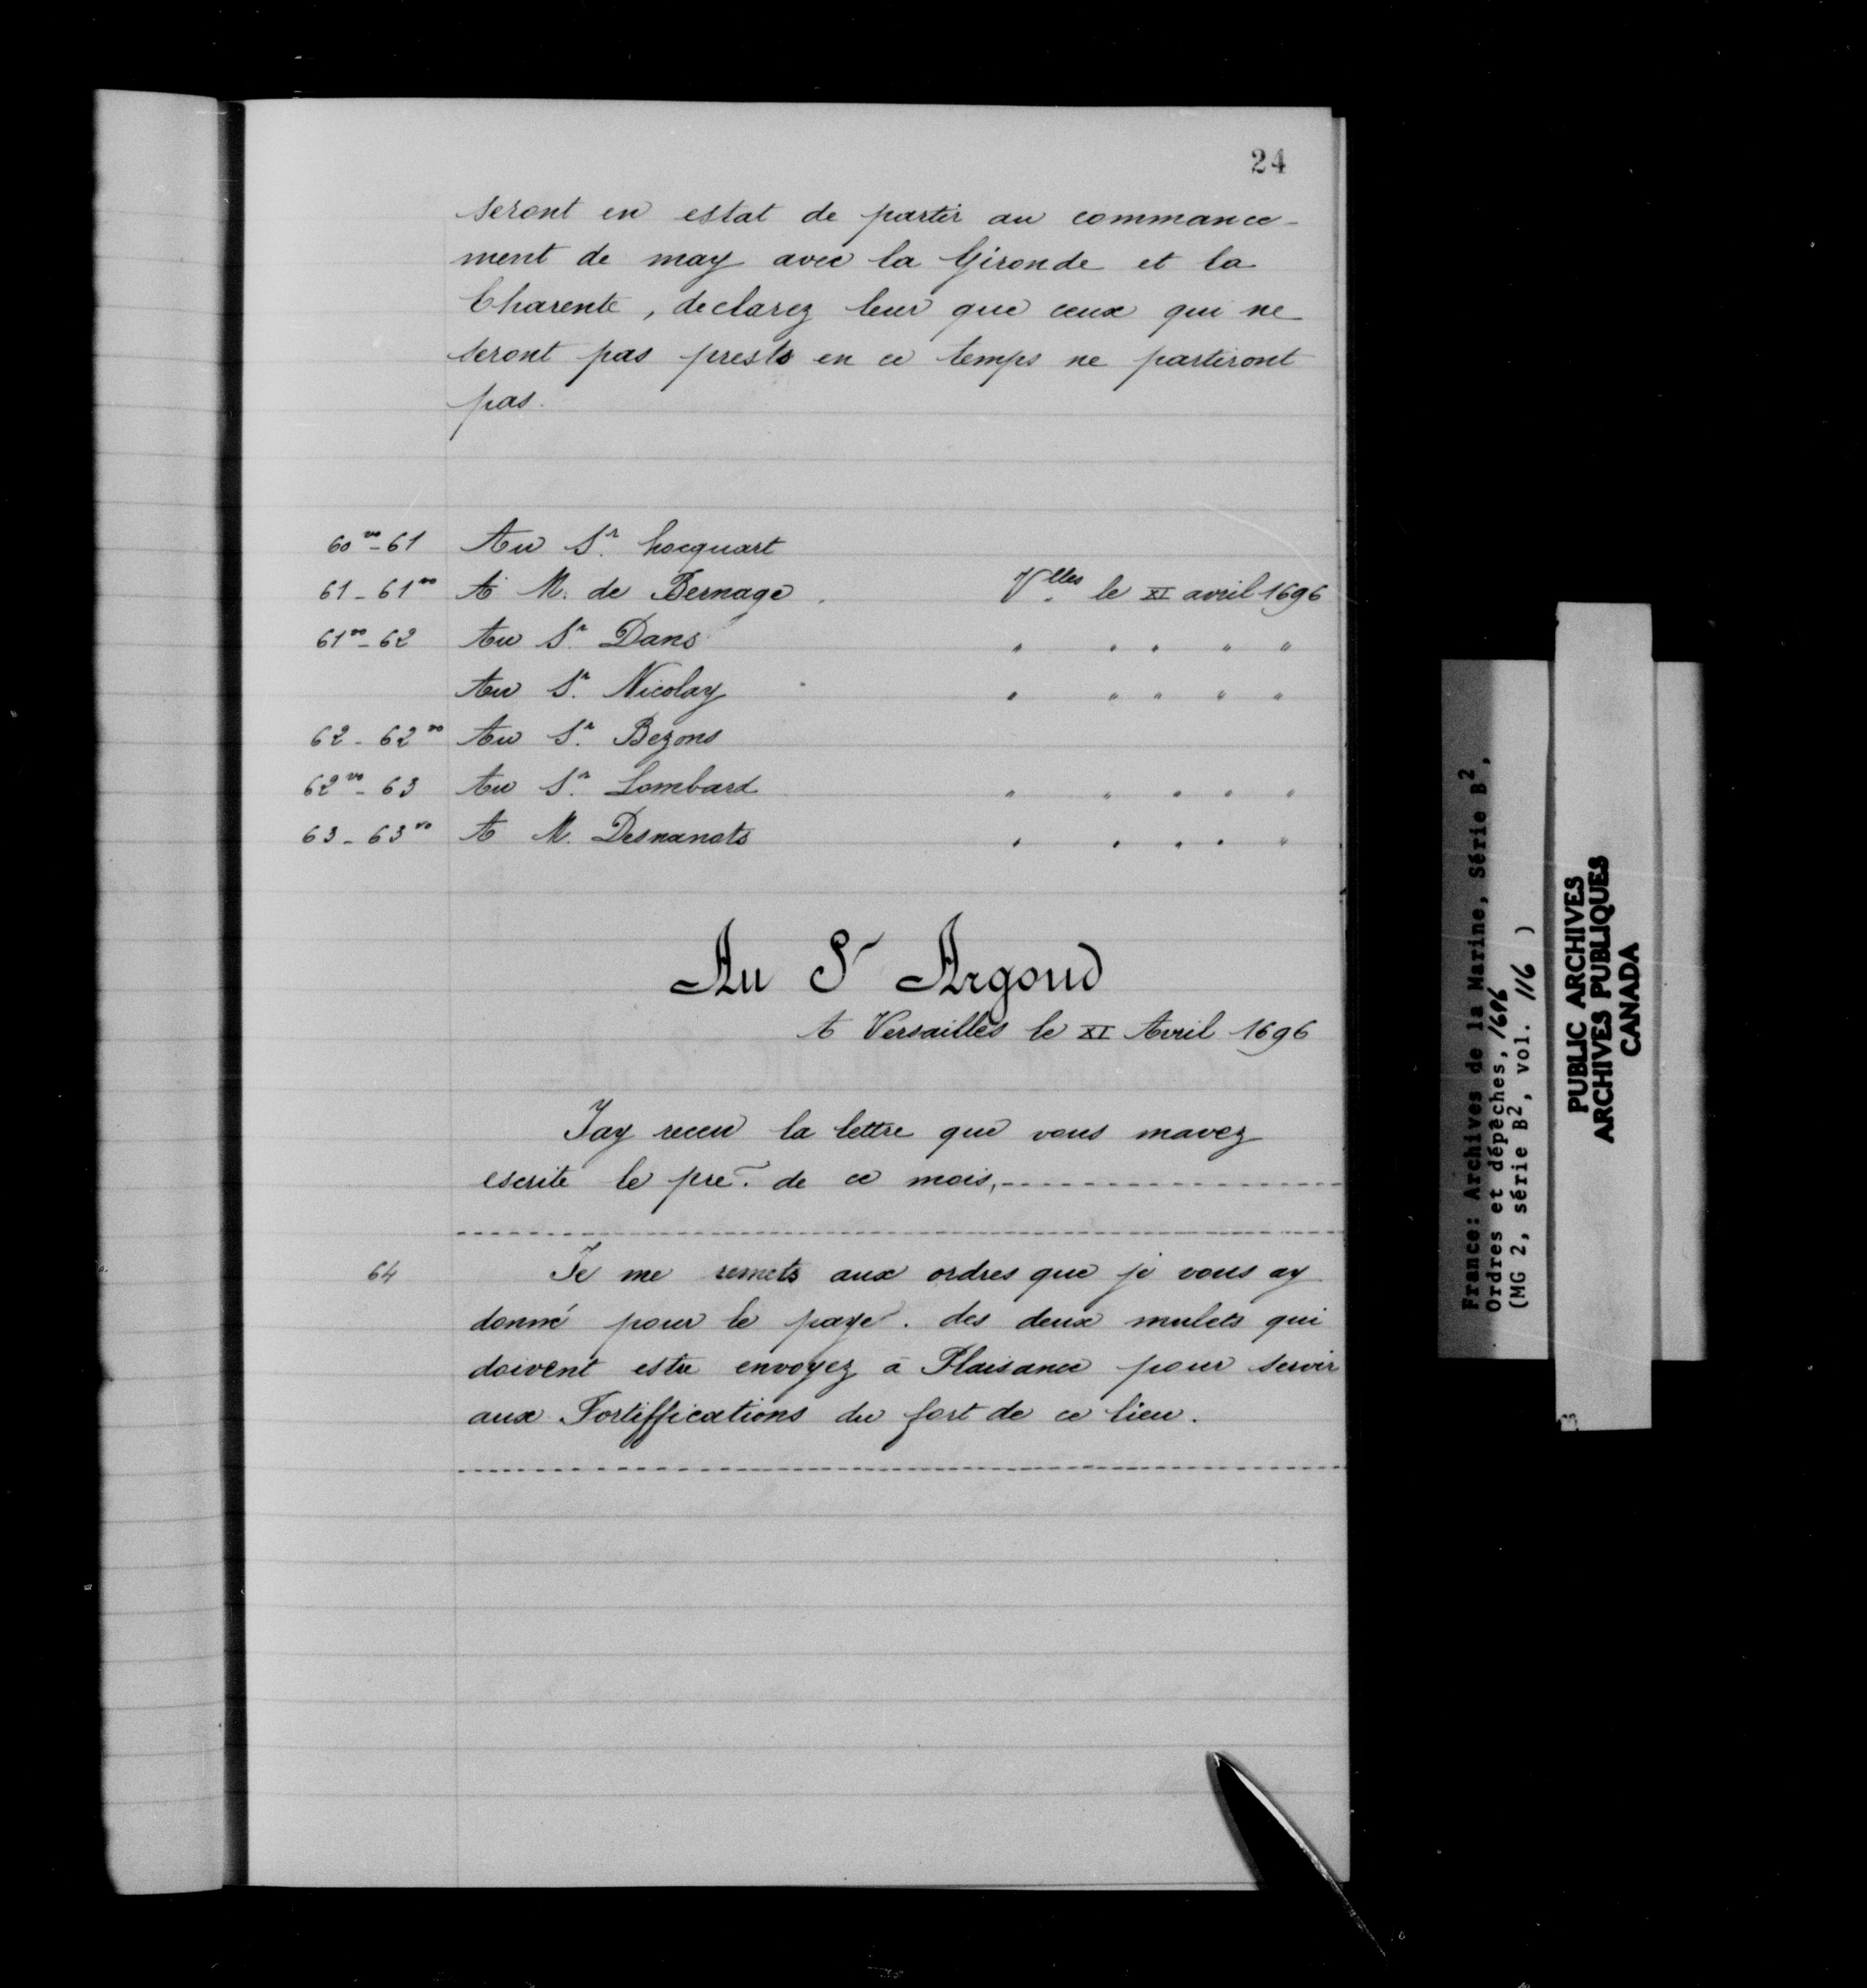 24
seront en estat de partir au commance-
ment de may avec la Gironde et la
Charente, declarez leur que ceux qui ne
seront pas prests en ce temps ne partiront
pas.
60vo-61 Au Sr. hocquart
61-61vo A M. de Bernage. Vlles le XI avril 1696
61vo-62 Au Sr. Dans " " " " "
Au Sr. Nicolay " " " " "
62-62vo Au Sr. Bezons
62vo-63 Au Sr. Lombard " " " " "
63-63vo A M. Desnanots " " " " "
Au Sr Argoud
A Versailles le XI Avril 1696
Jay receu la lettre que vous mavez
escrite le pre. de ce mois,
64 Je me remets aux ordres que je vous ay
donné pour le paye. des deux mulets qui
doivent estre envoyez à Plaisance pour servir
aux Fortiffications du fort de ce lieu.
France: Archives de la Marine, Série B2,
Ordres et dépêches, 1696
(MG 2, série B2, vol. 116 )
PUBLIC ARCHIVES
ARCHIVES PUBLIQUES
CANADA